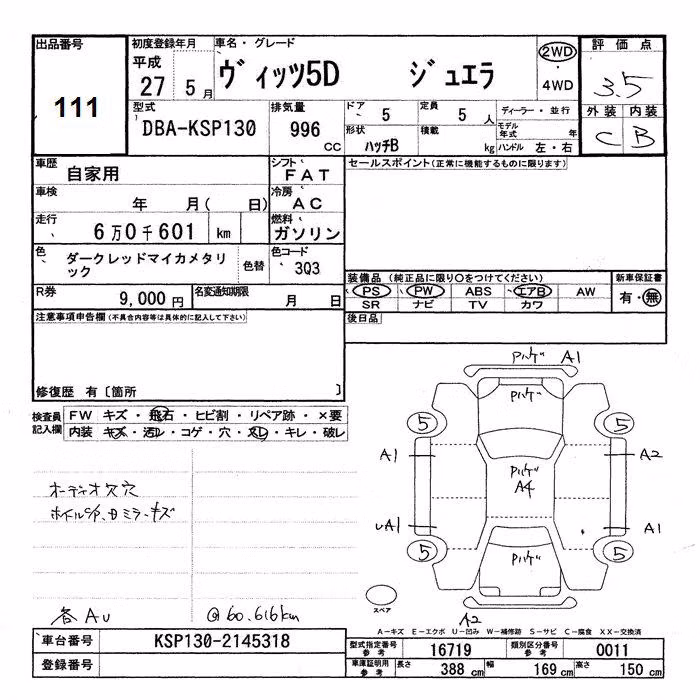 出品番号 初度登録年月 車名・グレード 2WD 評価点
111 平成 27 5月 ヴィッツ5D ジュエラ ・ 4WD 3.5
型式 排気量 ドア 定員 ディーラー・並行 外装 内装
DBA-KSP130 996 CC 5 5人 モデル年式 年 C B
形状 ハッチB 積載 kg ハンドル 左・右
車歴 自家用 シフト FAT セールスポイント(正常に機能するものに限ります)
車検 年 月( 日) 冷房 AC
走行 6万0千601 km 燃料 ガソリン
色 ダークレッドマイカメタリック 色替 色コード 3Q3
装備品 (純正品に限り〇をつけてください) 新車保証書
PS PW ABS エアB AW 有・無
SR ナビ TV カワ
R券 9,000円 名変通知期限 月 日
後日品
注意事項申告欄(不具合内容等は具体的に記入して下さい)
修復歴 有〔箇所 〕
検査員記入欄 FW キズ・飛石・ヒビ割・リペア跡・×要
内装 キズ・汚レ・コゲ・穴・スレ・キレ・破レ
オーディオ欠穴
各AU @60.616km
ハゲ A1
ハゲ
5 5
A1 ハゲ A4 A2
A1 A1
5 ハゲ 5
スペア A2
A-キズ E-エクボ U-凹み W-補修跡 S-サビ C-腐食 XX-交換済
車台番号 KSP130-2145318
登録番号
型式指定番号 参考 16719 類別区分番号 参考 0011
車庫証明用 参考 長さ 388 cm 幅 169 cm 高さ 150 cm